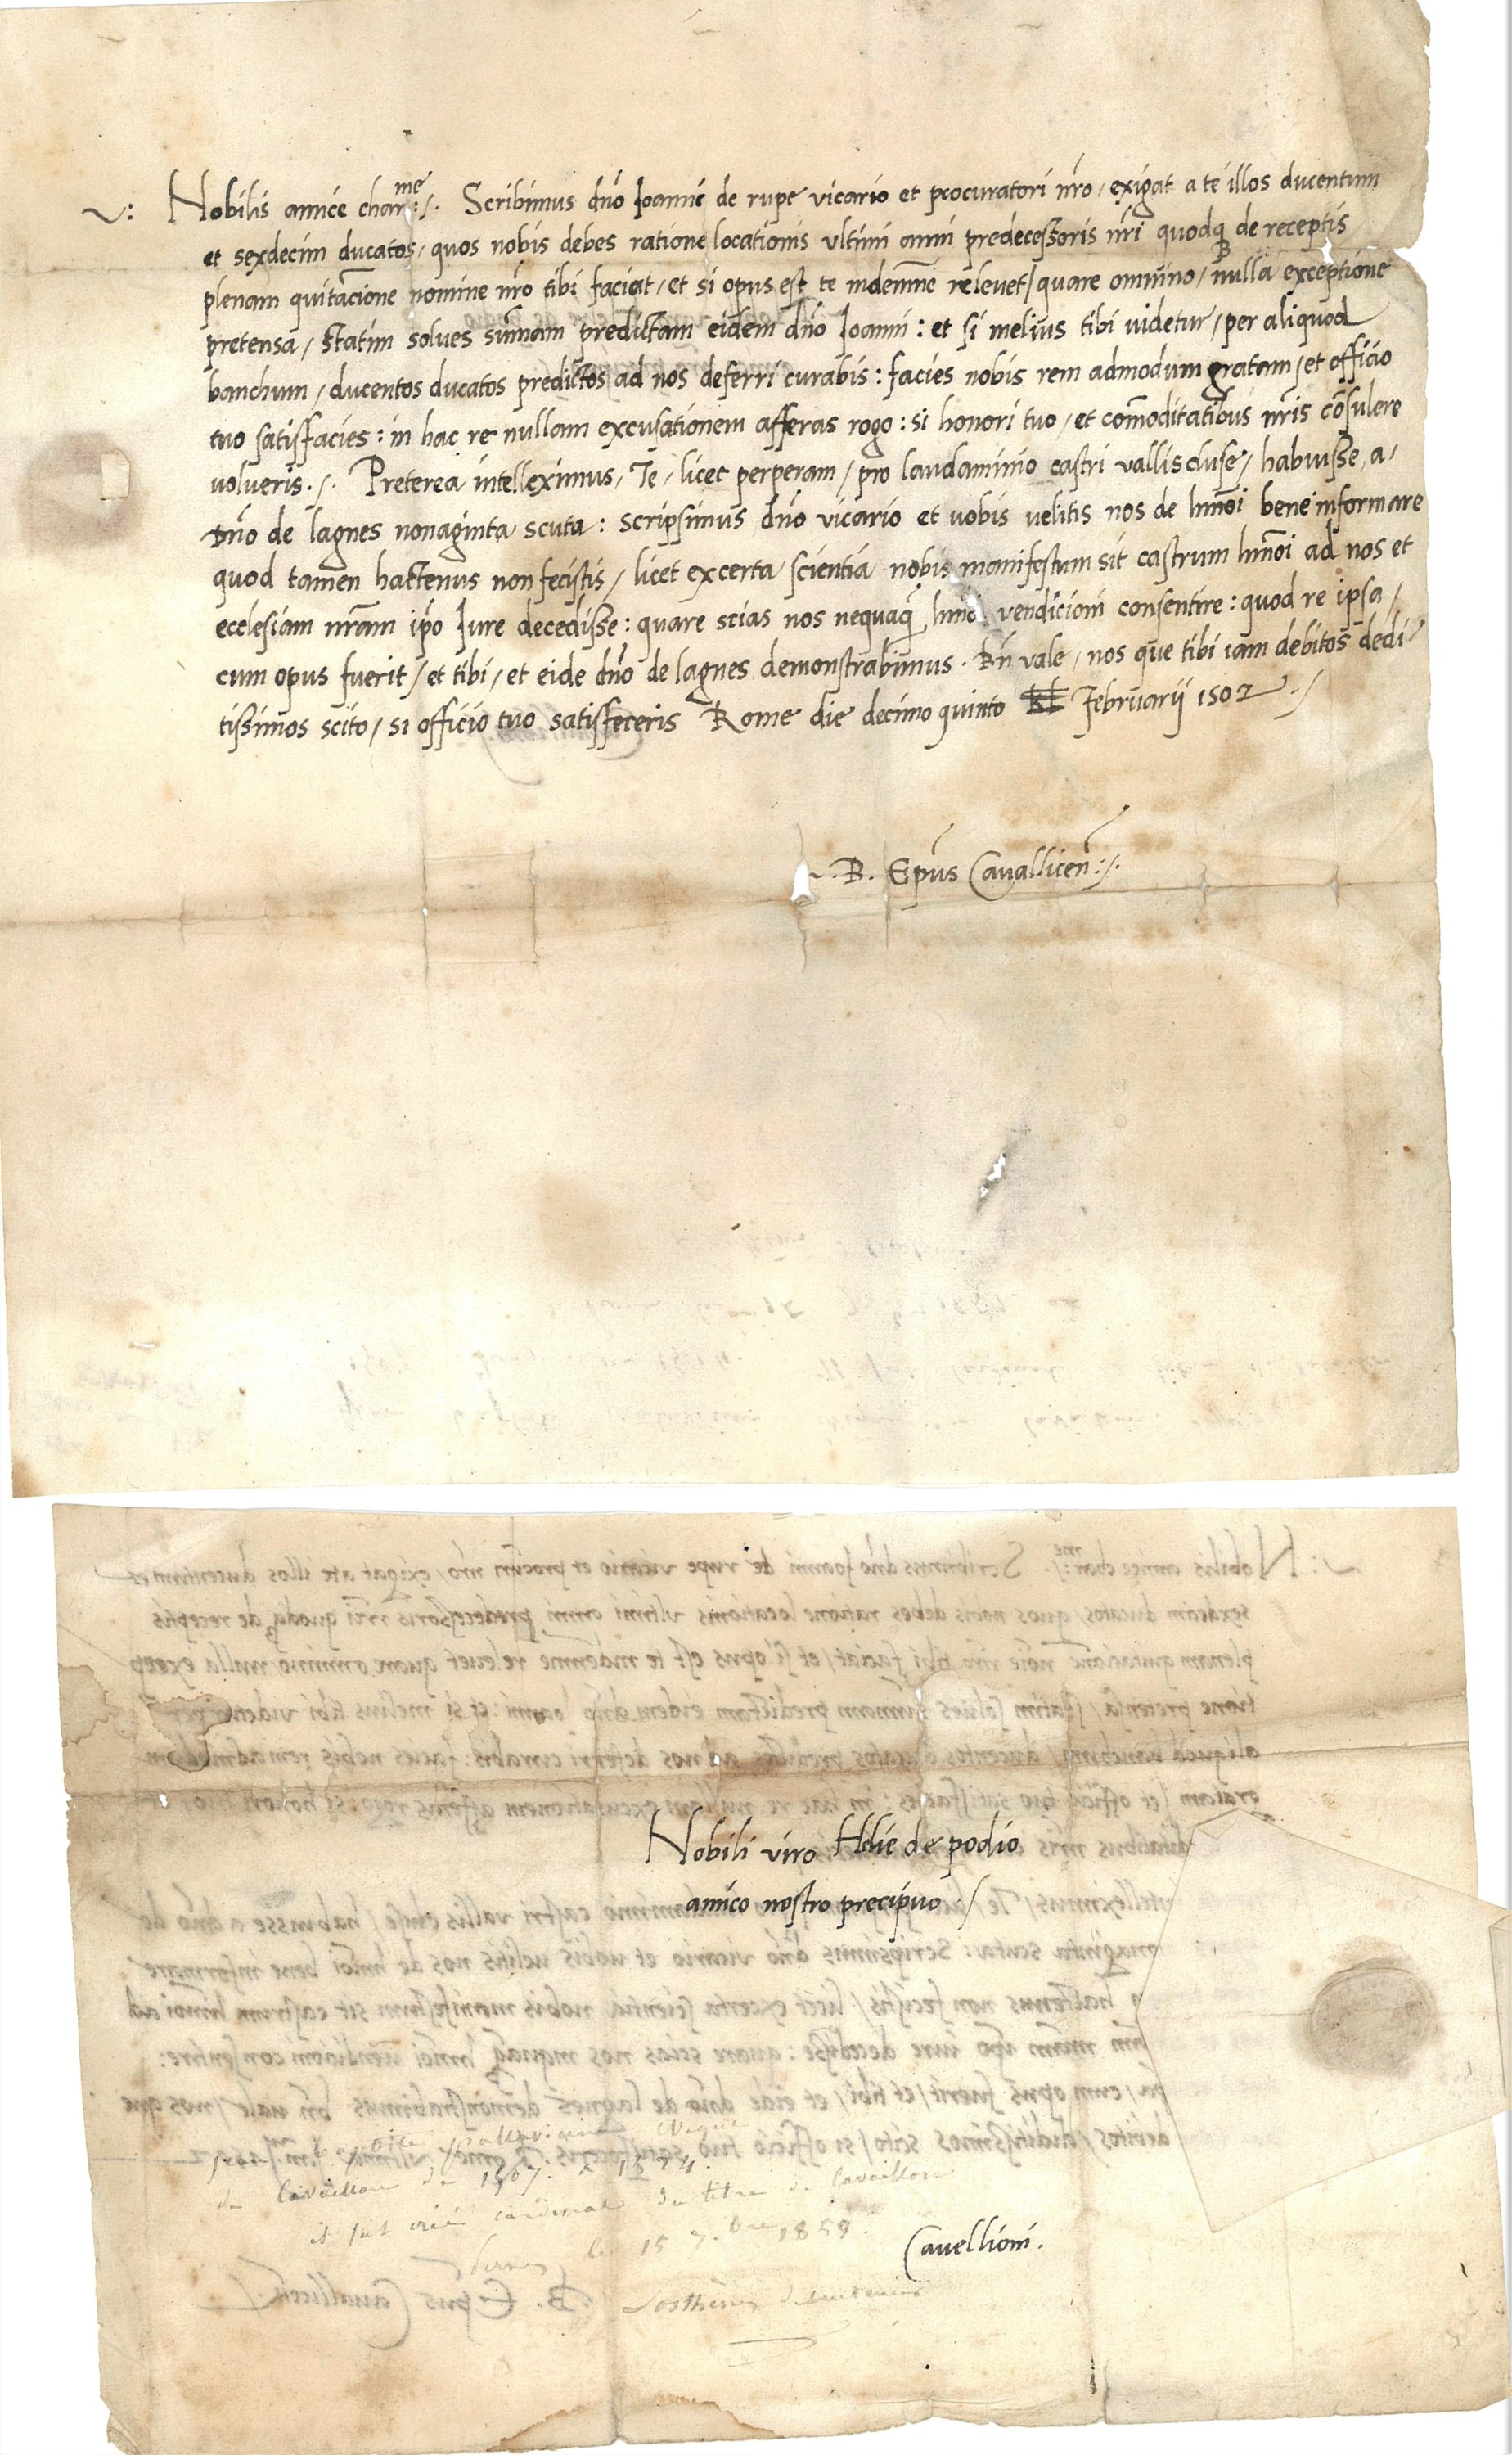 v: Nobilis amice char.me:/. Scribimus dño Joanni de rupe vicario et procuratori nro / exigat a te illos ducentum
et sexdecim ducatos / quos nobis debes ratione locationis ultimi anni predecessoris nri quodq de receptis
plenam quitācione nomine nro tibi faciat / et si opus est te indemne relevet / quare omnino / nulla exceptione
pretensa / statim solves sūmam predictam eidem dño Joanni : et si melius tibi uidetur / per aliquod
banchum / ducentos ducatos predictos ad nos deferri curabis : facies nobis rem admodum gratam / et officio
tuo satisfacies : in hac re nullam excusationem afferas rogo : si honori tuo / et cōmoditatibus nris cōsulere
uolueris ./. Preterea intelleximus / Te / licet perperam / pro laudaminio castri vallis cluse / habuisse / a /
dño de lagnes nonaginta scuta : scripsimus dño vicario et uobis uelitis nos de hmōi bene informare
quod tamen hactenus non fecistis / licet ex certa scientia nobis manifestum sit castrum hmōi ad nos et
ecclesiam nrām ip̄o Iure decedisse : quare scias nos nequaq̄ hmōi vendicioni consentire : quod re ipsa /
cum opus fuerit / et tibi / et eidē dño de lagnes demonstrabimus . Bn̄ vale / nos que tibi iam debitos dedi-
tissimos scito / si officio tuo satisfeceris Rome die decimo quinto kl Februarii 1502 ./
.B. Ep̄us Cavallicen̄ :/.
Nobili viro Helie de podio
amico nostro precipuo :/
Jean baptiste pallavicini évêque
de Cavaillon de 1507 à 1524.
il fut créé cardinal du titre de Cavaillon
le 15 7.bre 1859.
Sosthènes
Cavellioni.